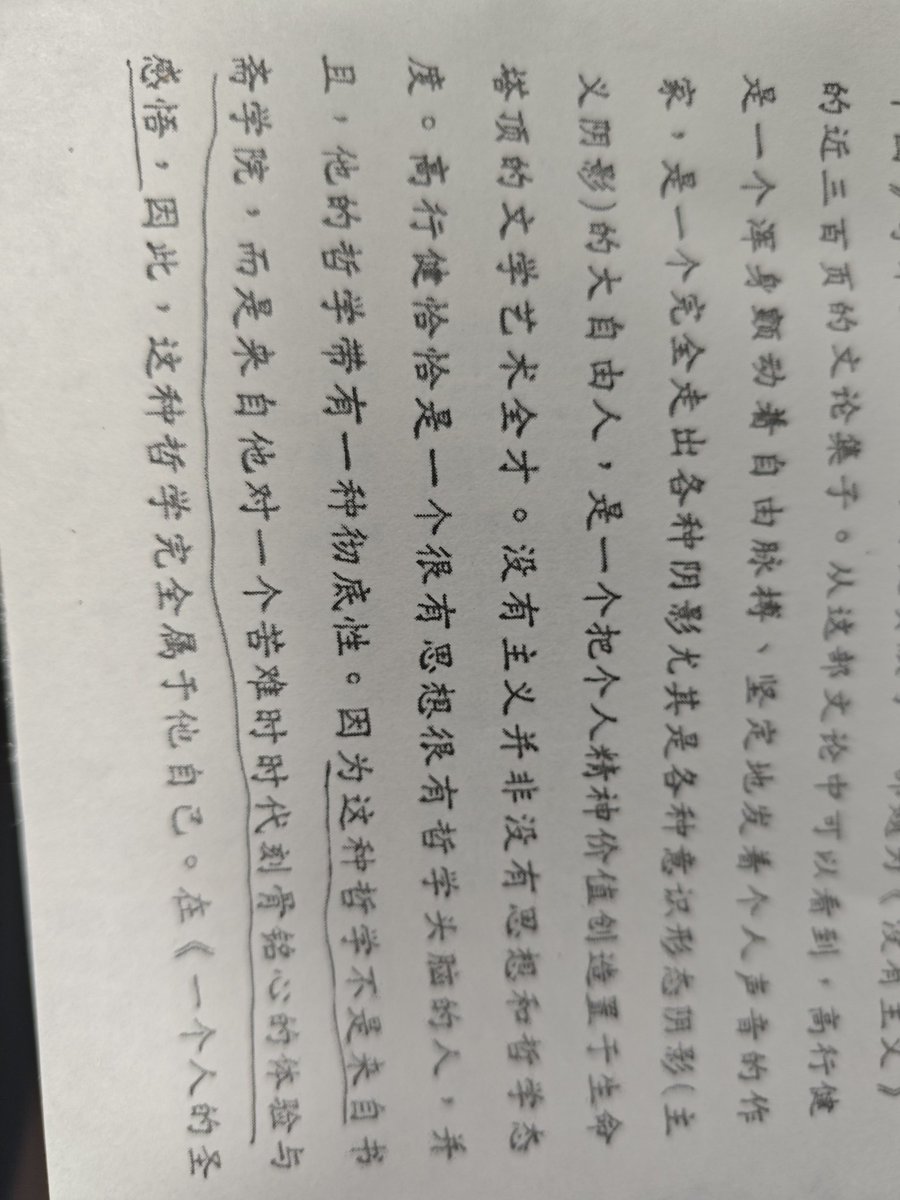 《没有主义》
的近三百页的文论集子。从这部文论中可以看到，高行健
是一个浑身颤动着自由脉搏、坚定地发着个人声音的作
家，是一个完全走出各种阴影尤其是各种意识形态阴影(主
义阴影)的大自由人，是一个把个人精神价值创造置于生命
塔顶的文学艺术全才。没有主义并非没有思想和哲学态
度。高行健恰恰是一个很有思想很有哲学头脑的人，并
且，他的哲学带有一种彻底性。因为这种哲学不是来自书
斋学院，而是来自他对一个苦难时时代刻骨铭心的体验与
感悟，因此，这种哲学完全属于他自己。在《一个人的圣